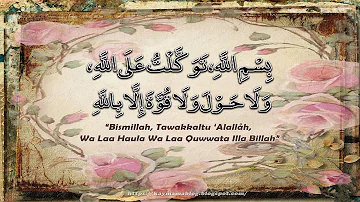 بِسْمِ اللَّهِ، تَوَكَّلْتُ عَلَى اللَّهِ،
وَلَا حَوْلَ وَلَا قُوَّةَ إِلَّا بِاللَّهِ
"Bismillah, Tawakkaltu 'Alallāh,
Wa Laa Haula Wa Laa Quwwata Illa Billah"